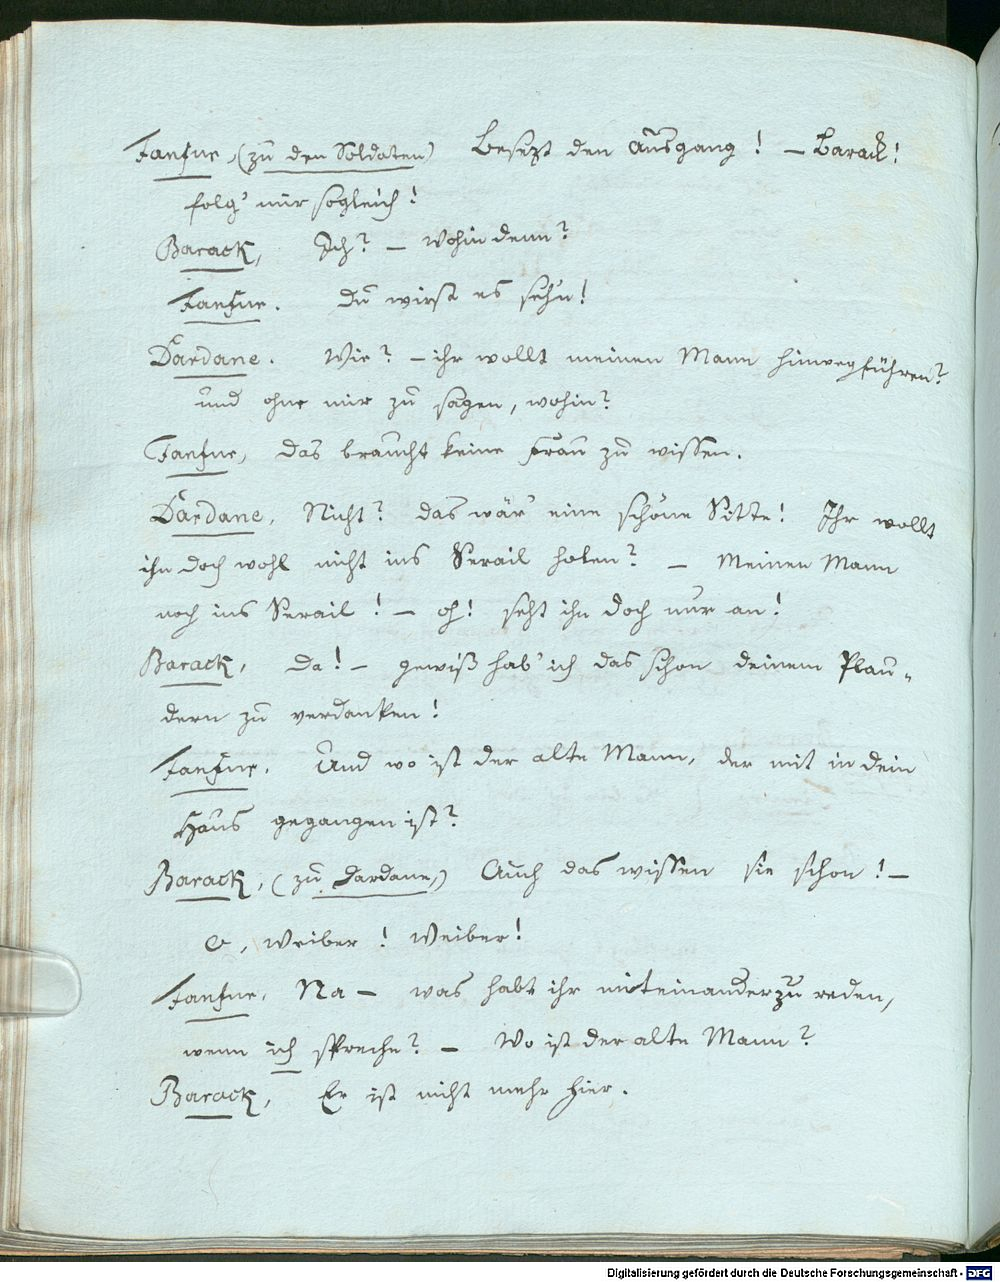 Fanfur, (zu den Soldaten) Besezt den Ausgang! – Barack!
folg' mir sogleich!
Barack, Ich? – Wohin denn?
Fanfur. Du wirst es sehn!
Dardane. Wie? – ihr wollt meinen Mann hinwegführen?
und ohne mir zu sagen, wohin?
Fanfur, das braucht keine Frau zu wissen.
Dardane, Nicht? das wär' eine schöne Sitte! Ihr wollt
ihn doch wohl nicht ins Serail holen? – Meinen Mann
noch ins Serail! – oh! seht ihn doch nur an!
Barack, Da! – gewiß hab' ich das schon deinem Plau-
dern zu verdanken!
Fanfur. Und wo ist der alte Mann, der mit in dein
Haus gegangen ist?
Barack, (zu Dardane,) Auch das wissen sie schon! –
O, Weiber! Weiber!
Fanfur. Na – was habt ihr miteinander zu reden,
wenn ich spreche? – Wo ist der alte Mann?
Barack, Er ist nicht mehr hier.
Digitalisierung gefördert durch die Deutsche Forschungsgemeinschaft - DFG